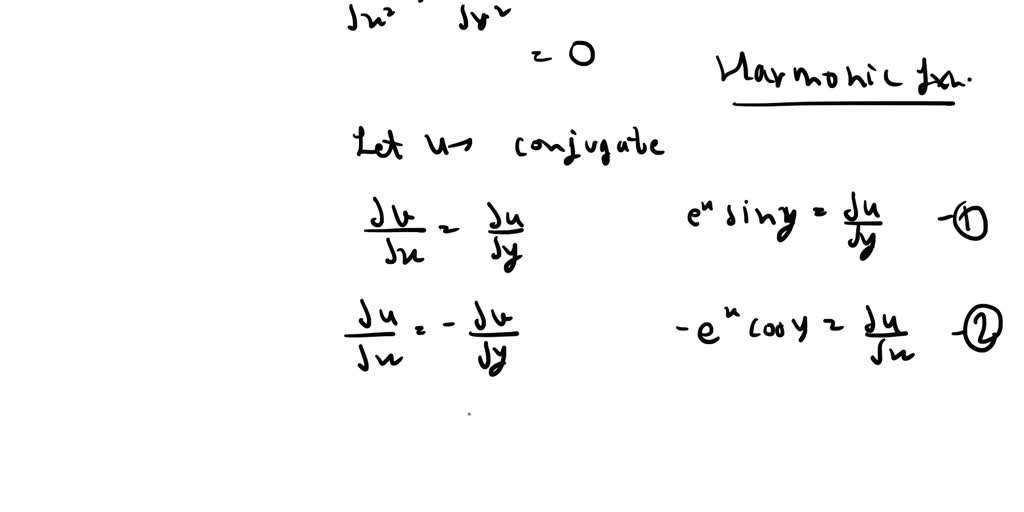 ∂x² ∂y²
= 0
Harmonic fxn.
Let u → conjugate
∂v/∂x = ∂u/∂y    eˣ siny = ∂u/∂y — ①
∂u/∂x = - ∂v/∂y    - eˣ cosy = ∂u/∂x — ②